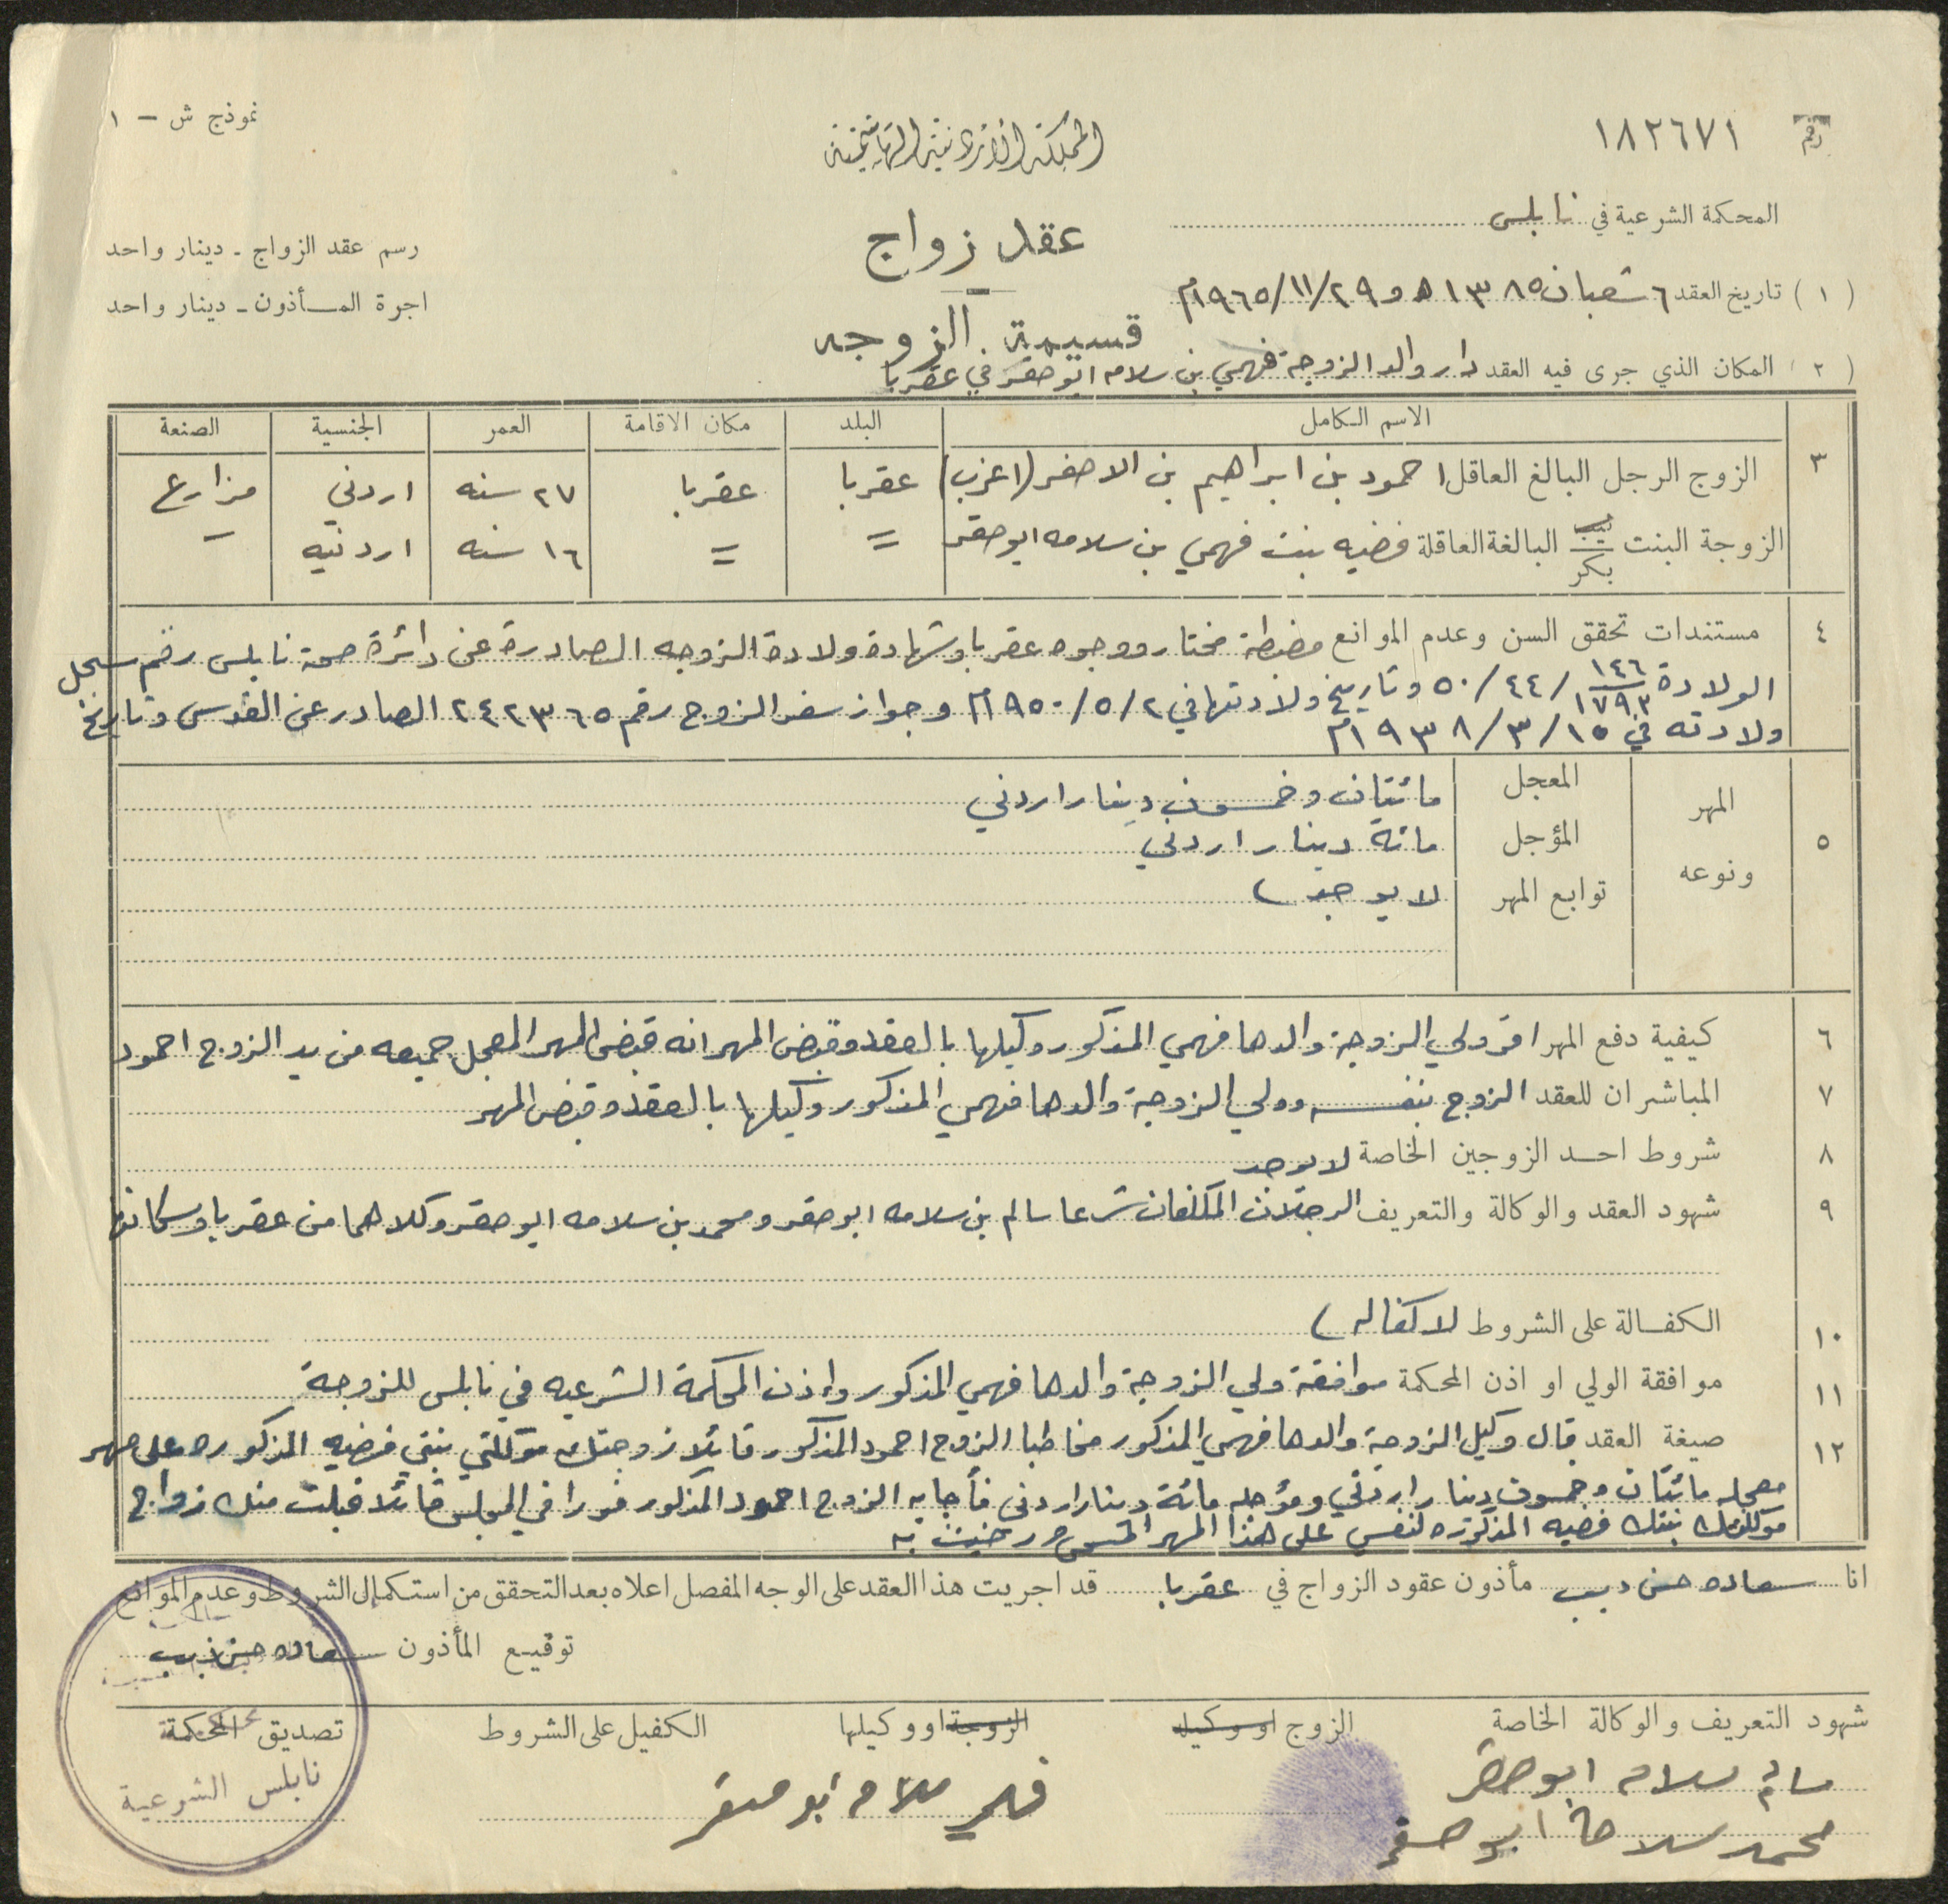 رقم ١٨٢٦٧١
نموذج ش - ١
المملكة الأردنية الهاشمية
المحكمة الشرعية في نابلس
عقد زواج
رسم عقد الزواج - دينار واحد
(١) تاريخ العقد ٦ شعبان ١٣٨٥ه و ٢٩/١١/١٩٦٥م
اجرة المأذون - دينار واحد
قسيمة الزوجه
(٢) المكان الذي جرى فيه العقد دار والد الزوجة فهمي بن سلامه ابو صقر في عقربا
الاسم الكامل البلد مكان الاقامة العمر الجنسية الصنعة
٣ الزوج الرجل البالغ العاقل احمود بن ابراهيم بن الاصفر (اعزب) عقربا عقربا ٢٧ سنه اردني مزارع
الزوجة البنت ثيب بكر البالغة العاقلة فضيه بنت فهمي بن سلامه ابو صقر = = ١٦ سنه اردنيه -
٤ مستندات تحقق السن وعدم الموانع مضبطة مختار ووجوه عقربا وشهادة ولادة الزوجه الصادرة عن دائرة صحة نابلس رقم سجل
الولادة ١٤٦/١٧٩٢ /٤٤/٥٠ وتاريخ ولادتها في ٢/٥/١٩٥٠م وجواز سفر الزوج رقم ٢٤٢٣٦٥ الصادر عن القدس وتاريخ
ولادته في ١٥/٣/١٩٣٨م
٥ المهر ونوعه
المعجل مائتان وخمسون دينار اردني
المؤجل مائة دينار اردني
توابع المهر لا يوجد
٦ كيفية دفع المهر اقر ولي الزوجة والدها فهمي المذكور وكيلها بالعقد وقبض المهر انه قبض المهر المعجل جميعه من يد الزوج احمود
٧ المباشران للعقد الزوج بنفسه وولي الزوجة والدها فهمي المذكور وكيلها بالعقد وقبض المهر
٨ شروط احد الزوجين الخاصة لا يوجد
٩ شهود العقد والوكالة والتعريف الرجلان المكلفان شرعا سالم بن سلامه ابو صقر ومحمد بن سلامه ابو صقر وكلاهما من عقربا وسكانها
١٠ الكفالة على الشروط لا كفاله
١١ موافقة الولي او اذن المحكمة موافقة ولي الزوجة والدها فهمي المذكور واذن المحكمة الشرعيه في نابلس للزوجة
١٢ صيغة العقد قال وكيل الزوجة والدها فهمي المذكور مخاطبا الزوج احمود المذكور قائلا زوجتك موكلتي بنتي فضيه المذكوره على مهر
معجله مائتان وخمسون دينار اردني ومؤجله مائة دينار اردني فأجابه الزوج احمود المذكور فورا في المجلس قائلا قبلت منك زواج
موكلتك بنتك فضيه المذكوره لنفسي على هذا المهر المسمى ورضيت به
انا سعاده حسن ديب مأذون عقود الزواج في عقربا قد اجريت هذا العقد على الوجه المفصل اعلاه بعد التحقق من استكمال الشروط وعدم الموانع
توقيع المأذون سعاده حسن ديب
شهود التعريف والوكالة الخاصة الزوج او وكيله الزوجة او وكيلها الكفيل على الشروط تصديق المحكمة
سالم سلامه ابو صقر
فهمي سلامه ابو صقر
نابلس الشرعية
محمد سلامة ابو صقر